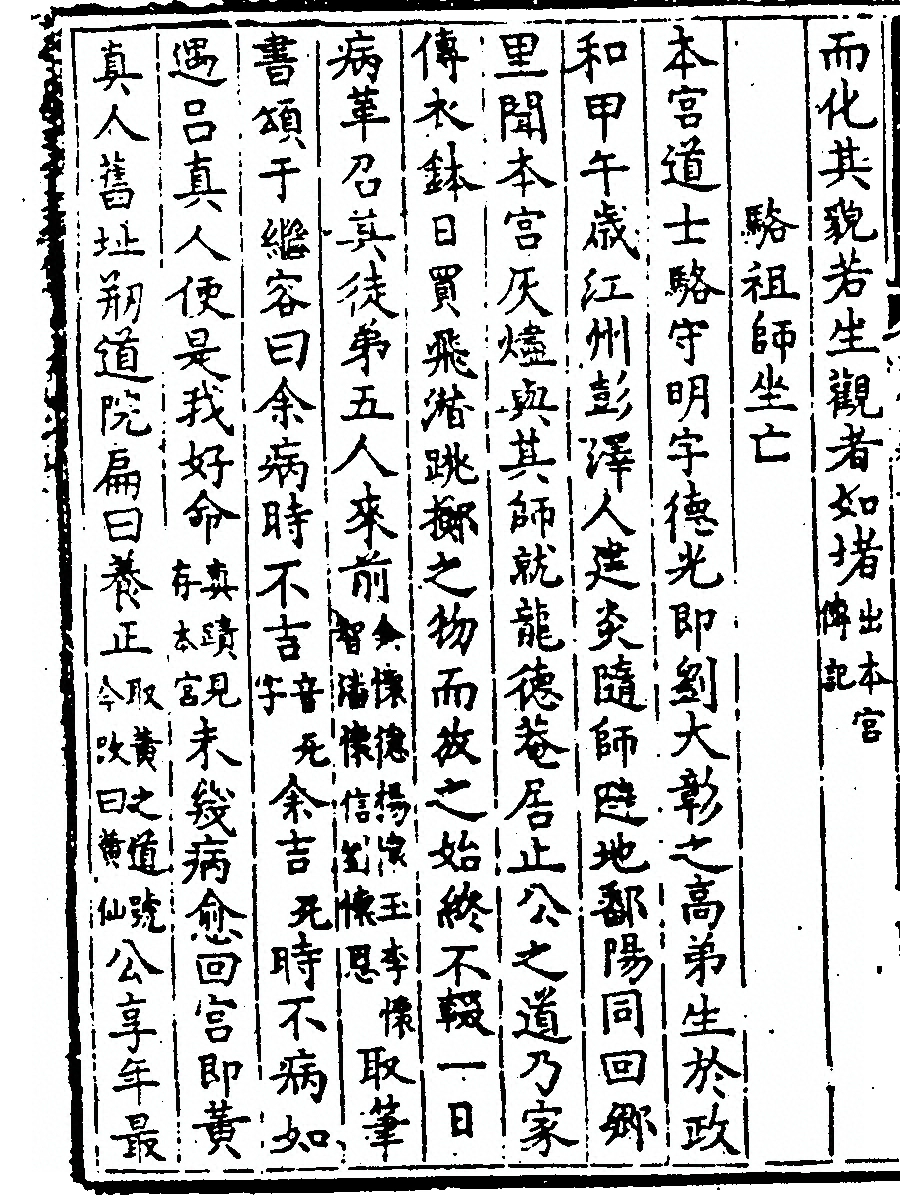 而化其貌若生觀者如堵出本宮傳記
駱祖師坐亡
本宮道士駱守明字德光即劉大彰之高弟生於政
和甲午歲江州彭澤人建炎隨師避地鄱陽同回鄉
里聞本宮灰燼與其師就龍德菴居止公之道乃家
傳衣鉢日買飛潛跳擲之物而放之始終不輟一日
病革召其徒弟五人來前余懷德楊懷玉李懷智潘懷信刘懷恩取筆
書頌于繼容曰余病時不吉音死字余吉死時不病如
遇呂真人便是我好命真蹟見存本宮未幾病愈回宮即黃
真人舊址剏道院扁曰養正取黃之道號今改曰黃仙公享年最